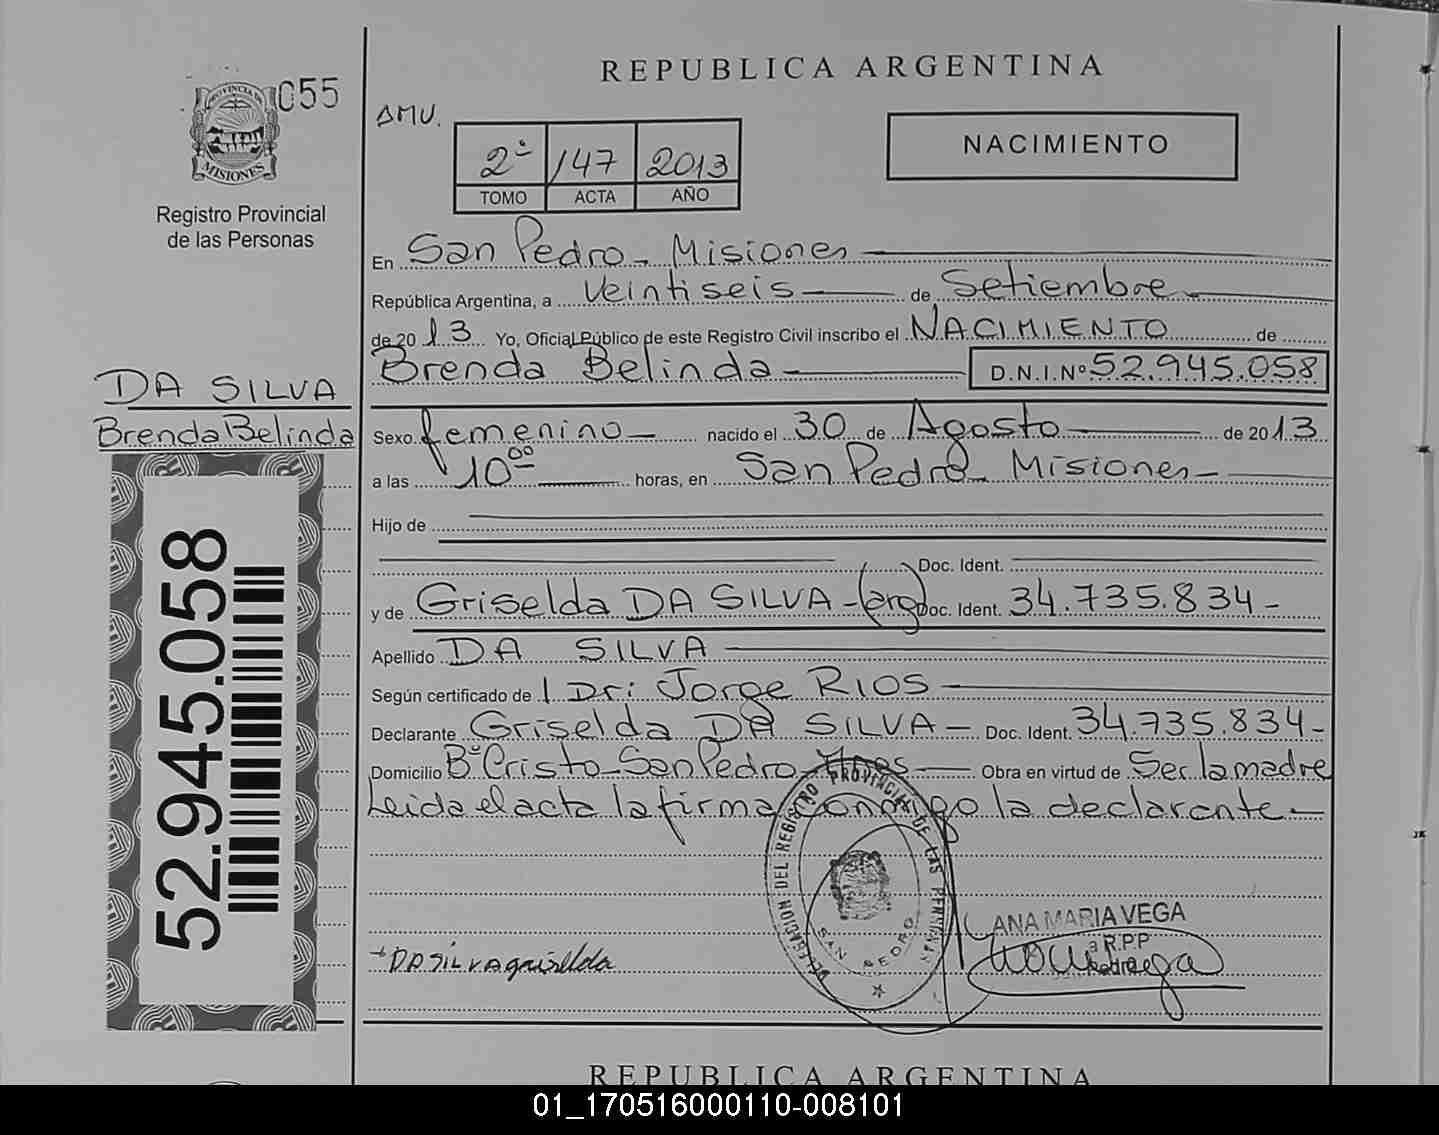 055
PROVINCIA DE
MISIONES
Registro Provincial
de las Personas
REPUBLICA ARGENTINA
AMU.
2º 147 2013
TOMO ACTA AÑO
NACIMIENTO
En San Pedro - Misiones
República Argentina, a Veintiseis de Setiembre
de 2013 Yo, Oficial Público de este Registro Civil inscribo el NACIMIENTO de
Brenda Belinda D.N.I.Nº 52.945.058
DA SILVA
Brenda Belinda
Sexo femenino nacido el 30 de Agosto de 2013
a las 10 00 horas, en San Pedro - Misiones -
Hijo de
Doc. Ident.
y de Griselda DA SILVA - (arg) Doc. Ident. 34.735.834 -
Apellido DA SILVA
Según certificado de l Dr: Jorge RIOS
Declarante Griselda DA SILVA - Doc. Ident. 34.735.834 -
Domicilio Bº Cristo - San Pedro - Mnes Obra en virtud de Ser la madre
Leida el acta la firma conmigo la declarante -
52.945.058
DELEGACION DEL REGISTRO PROVINCIAL DE LAS PERSONAS
SAN PEDRO
DA SILVA griselda
ANA MARIA VEGA
R.P.P
REPUBLICA ARGENTINA
01_170516000110-008101